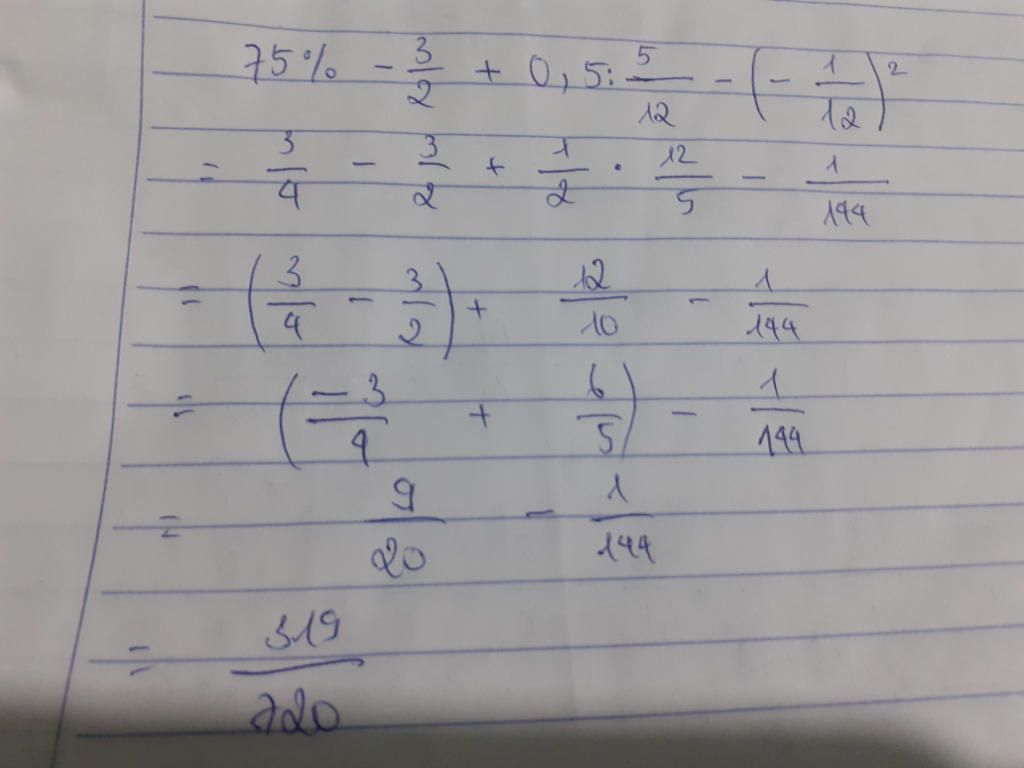 75% - 3/2 + 0,5 : 5/12 - (- 1/12)²
= 3/4 - 3/2 + 1/2 · 12/5 - 1/144
= (3/4 - 3/2) + 12/10 - 1/144
= (-3/4 + 6/5) - 1/144
= 9/20 - 1/144
= 319/720